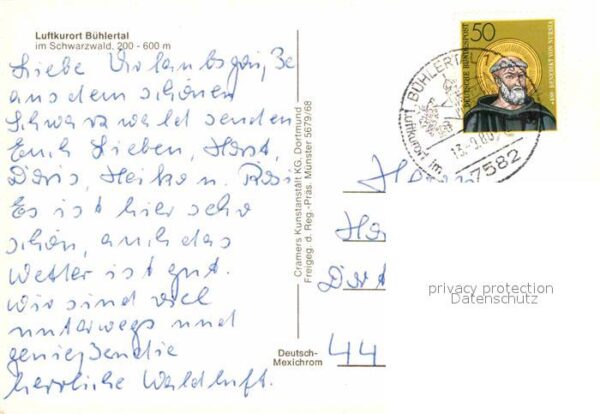 Luftkurort Bühlertal
im Schwarzwald, 200 - 600 m
Liebe Urlaubsgrüße
aus dem schönen
Schwarzwald senden
Euch Lieben, Horst,
Doris, Heiko u. Rosi
Es ist hier sehr
schön, auch das
Wetter ist gut.
Wir sind viel
unterwegs und
genießen die
herrliche Waldluft.
Cramers Kunstanstalt KG, Dortmund
Freigeg. d. Reg.-Präs. Münster 5679/68
Deutsch-
Mexichrom
50
DEUTSCHE BUNDESPOST
BENEDIKT VON NURSIA
BÜHLERTAL
Luftkurort im
7582
privacy protection
Datenschutz
44